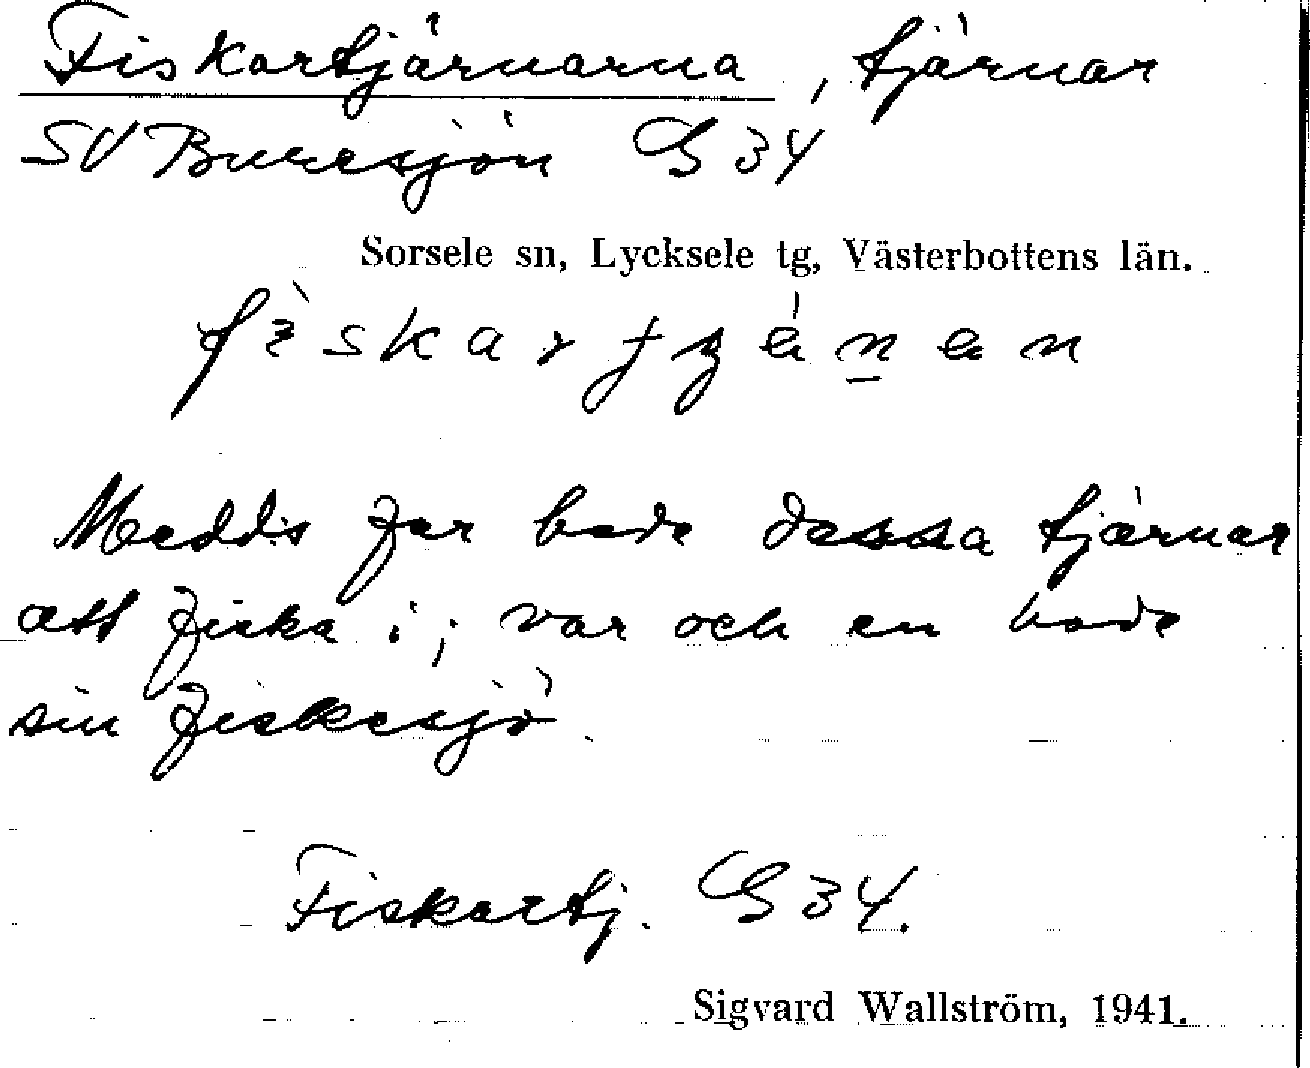 Fiskartjärnarna, tjärnar
SV Buresjön G 34
Sorsele sn, Lycksele tg, Västerbottens län.
Medd:s far hade dessa tjärnar
att fiska i; var och en hade
sin fiskesjö.
Fiskartj. G 34.
Sigvard Wallström, 1941.